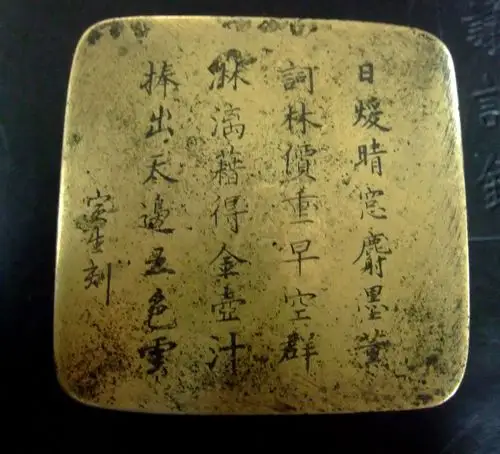 日煖晴窓麝墨薰
詞林價重早空群
淋漓藉得金壺汁
捧出天邊五色雲
寅生刻